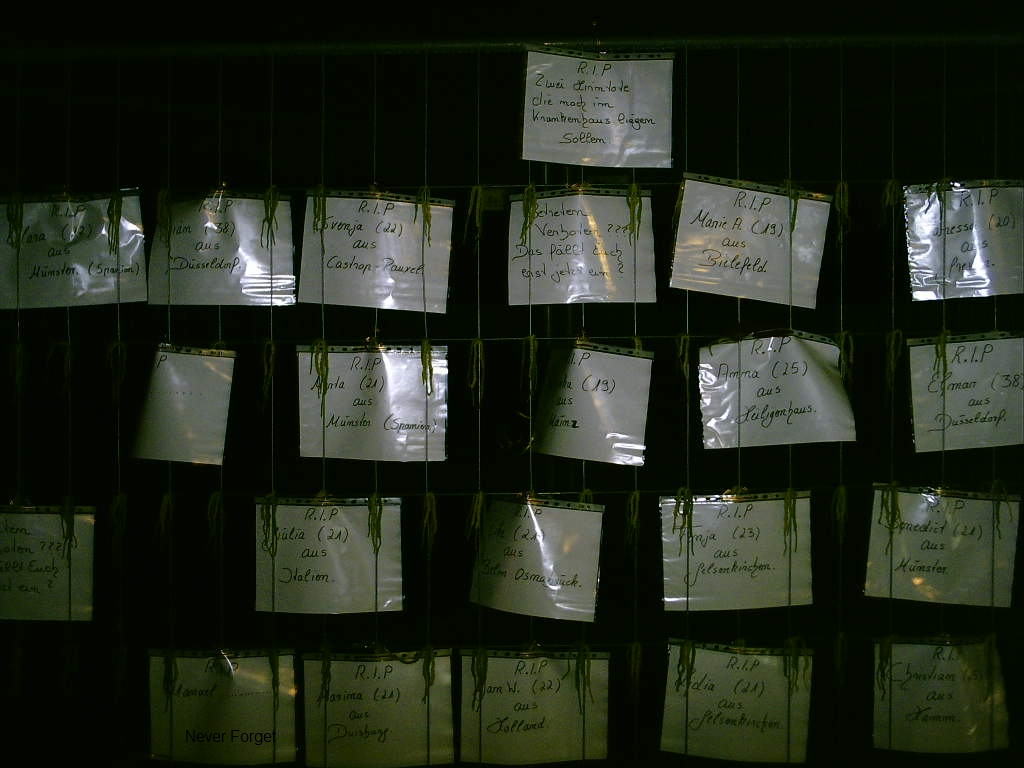 R.I.P
Zwei Hirntote
die noch im
Krankenhaus liegen
Sollen
R.I.P
aus
Münster (Spanien)
R.I.P
(38)
aus
Düsseldorf.
R.I.P
Svenja (22)
aus
Castrop-Rauxel
Schelem
Verboten ???
Das fällt Euch
erst jetzt ein ?
R.I.P
Marie A. (19)
aus
Bielefeld.
R.I.P
(20)
aus
P
R.I.P
Marta (21)
aus
Münster (Spanien)
R.I.P
(19)
aus
Mainz
R.I.P
Anna (25)
aus
Heiligenhaus.
R.I.P
Elmar (38)
aus
Düsseldorf.
???
ein ?
R.I.P
Giulia (21)
aus
Italien.
R.I.P
(21)
aus
Belm-Osnabrück.
R.I.P
(23)
aus
Gelsenkirchen.
R.I.P
Benedict (21)
aus
Münster.
R.I.P
Manuel ..........
R.I.P
Marina (21)
aus
Duisburg.
R.I.P
Jan W. (22)
aus
Holland.
R.I.P
Lidia (21)
aus
Gelsenkirchen.
R.I.P
Christian
aus
Hamm.
Never Forget